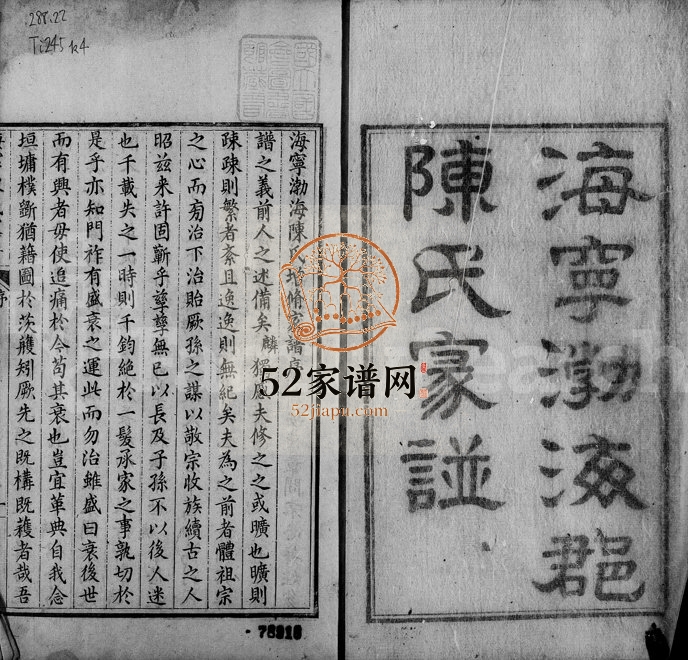 海寧渤海郡
陳氏家譜
288.22
Ti245
k4
海寧渤海陳氏增修家譜序
譜之義前人之述備矣麟獨慮夫修之之或曠也曠則
踈踈則繁者紊且逸逸則無紀矣夫為之前者體祖宗
之心而有治下治貽厥孫之謀以敬宗收族續古之人
昭茲来許固蘄乎孳孳無已以長及子孫不以後人迷
也千載失之一時則千鈞絕於一髮承家之事孰切於
是乎亦知門祚有盛衰之運此而勿治雖盛曰衰後世
而有興者毋使追痛於今苟其衰也豈宜革典自我念
垣墉樸斲猶藉圖於茨艧矧厥先之既構既穫者哉吾
序
52家谱网
52jiapu.com
78910